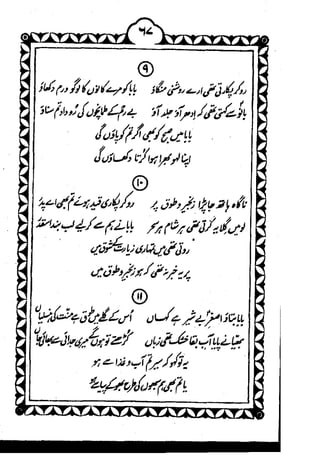 ۶۷
۹
رو کر پکارتی تھی ارے روشنی منگاؤ بابا کو میرے کانوں کا لوگو ورم دکھاؤ
بانو سے کہتی تھی کہ ادھر آؤ جلد آؤ بے رحم کے طمانچوں کی روداد تم سناؤ
بابا میں صبح کو بھی اگر تم کو پاؤں گی
اپنا لہو بھرا ہوا کرتا دکھاؤں گی
۱۰
ناگاہ ہاتھ جا پڑا زنجیر و طوق پر رو کر پکاری قید ہوئے تم بھی اے پدر
لو میں گلا یہ کرتی تھی ہر شام ہر سحر بابا نے ہم سے کر لیے لب بند
روتی تھی میں تمہاری زیارت کے شوق میں
پر یہ خبر نہ تھی کہ ہو زنجیر و طوق میں
۱۱
بابا بتاؤ اصغر بے شیر ہے کہاں اس کے گلے میں طوق ہے منت کی ہنسلیاں
بھیا نے پایا آب بقا خشک تھی زباں کڑھتے تو ہوں گے میری جدائی سے بھائی جاں
یہ تو کہو کہ میر تم آب و غذا سے ہو
یا تم بھی ہم سبھوں کی طرح بھوکے پیاسے ہو